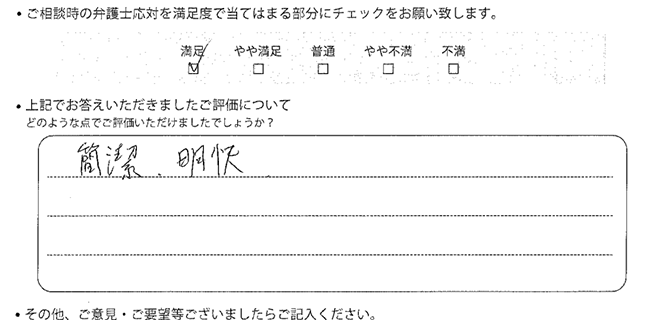 • ご相談時の弁護士応対を満足度で当てはまる部分にチェックをお願い致します。
満足 やや満足 普通 やや不満 不満
☑ □ □ □ □
• 上記でお答えいただきましたご評価について
どのような点でご評価いただけましたでしょうか？
簡潔、明快
• その他、ご意見・ご要望等ございましたらご記入ください。